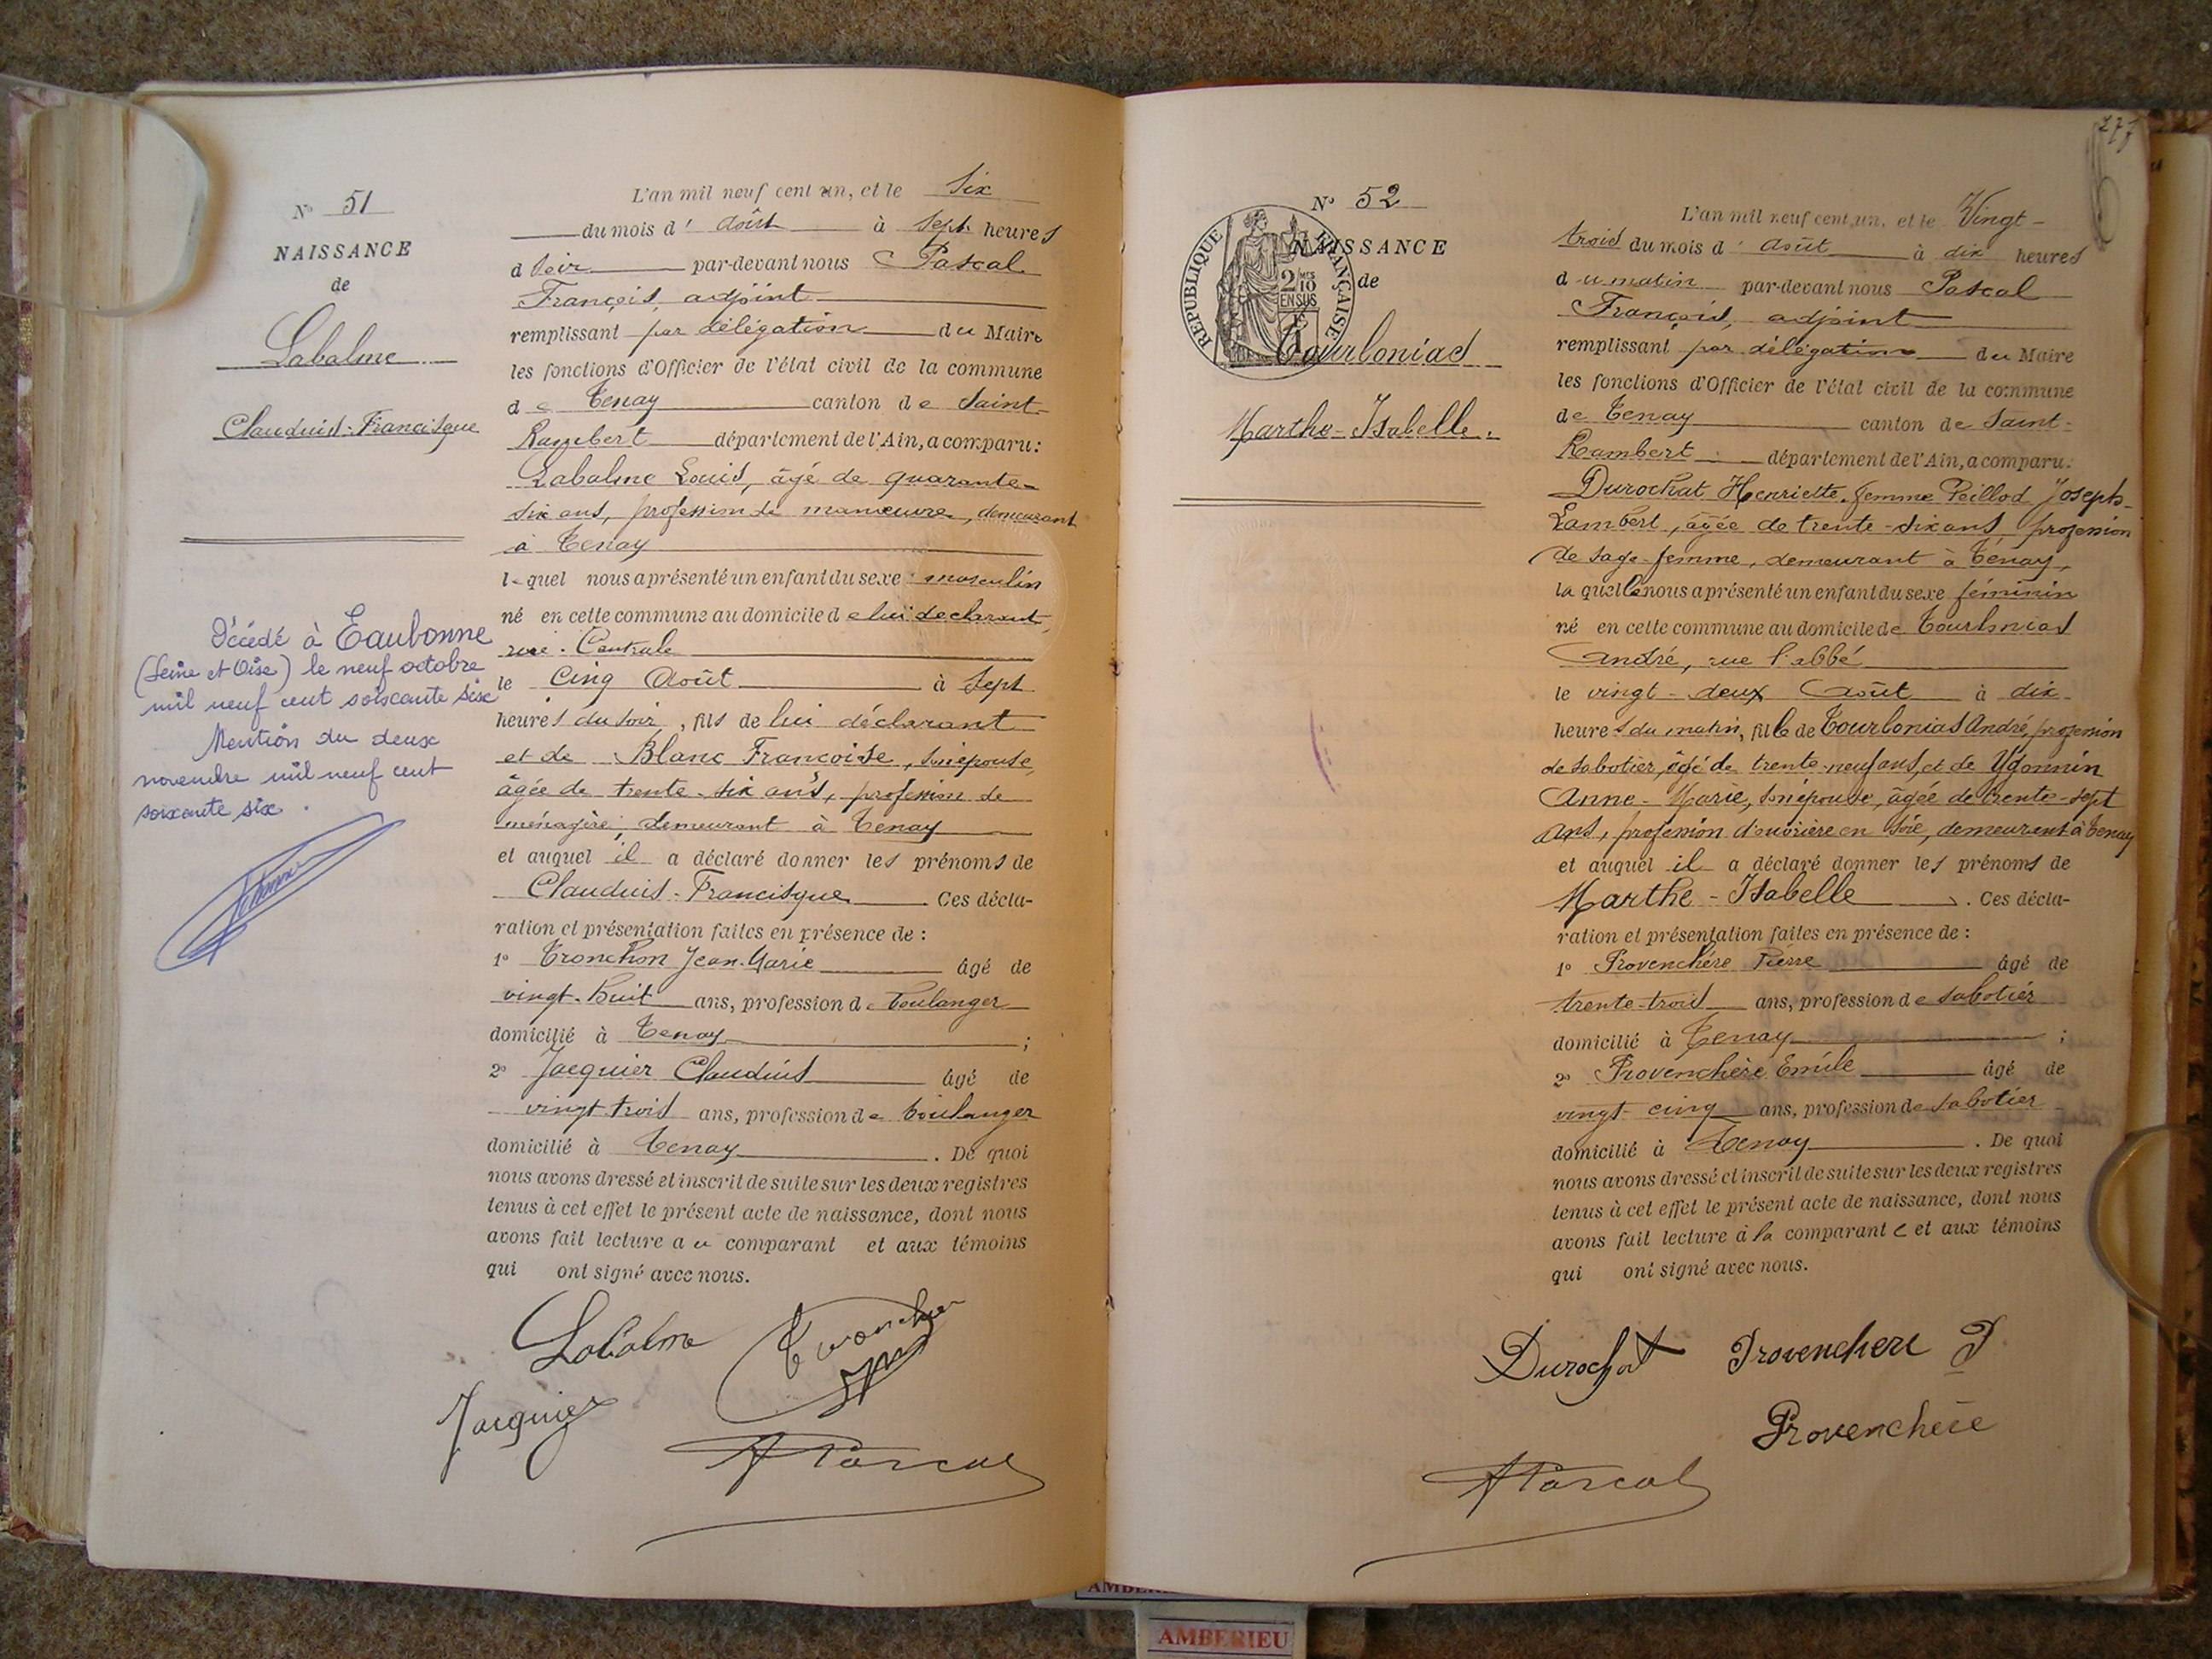 N° 51
NAISSANCE
de
Labalme
Claudius-Francisque
Décédé à Eaubonne
(Seine et Oise) le neuf octobre
mil neuf cent soixante six
Mention du deux
novembre mil neuf cent
soixante six.
L'an mil neuf cent un, et le six
du mois d'août à sept heures
d soir par-devant nous Pascal
François, adjoint
remplissant par délégation du Maire
les fonctions d'Officier de l'état civil de la commune
de Tenay canton de Saint-
Rambert département de l'Ain, a comparu:
Labalme Louis, âgé de quarante-
six ans, profession de manœuvre, demeurant
à Tenay
lequel nous a présenté un enfant du sexe masculin
né en cette commune au domicile de lui déclarant,
rue Centrale
le cinq Août à sept
heures du soir, fils de lui déclarant
et de Blanc Françoise, son épouse,
âgée de trente-six ans, profession de
ménagère, demeurant à Tenay
et auquel il a déclaré donner les prénoms de
Claudius-Francisque. Ces décla-
ration et présentation faites en présence de :
1° Tronchon Jean-Marie âgé de
vingt-huit ans, profession de boulanger
domicilié à Tenay ;
2° Jacquier Claudius âgé de
vingt trois ans, profession de boulanger
domicilié à Tenay. De quoi
nous avons dressé et inscrit de suite sur les deux registres
tenus à cet effet le présent acte de naissance, dont nous
avons fait lecture au comparant et aux témoins
qui ont signé avec nous.
Labalme Tronchon
Jacquier
Pascal
277
N° 52
NAISSANCE
de
REPUBLIQUE FRANÇAISE
2 MES
10
EN SUS
Tourlonias
Marthe-Isabelle.
L'an mil neuf cent un, et le Vingt-
trois du mois d'août à dix heures
du matin par-devant nous Pascal
François, adjoint
remplissant par délégation du Maire
les fonctions d'Officier de l'état civil de la commune
de Tenay canton de Saint-
Rambert département de l'Ain, a comparu:
Durochat Henriette, femme Peillod Joseph-
Lambert, âgée de trente-six ans, profession
de sage-femme, demeurant à Tenay,
laquelle nous a présenté un enfant du sexe féminin
né en cette commune au domicile de Tourlonias
André, rue l'abbé
le vingt-deux Août à dix
heures du matin, fille de Tourlonias André, profession
de sabotier, âgé de trente-neuf ans, et de Ygonnin
Anne-Marie, son épouse, âgée de trente-sept
ans, profession d'ouvrière en soie, demeurent à Tenay
et auquel il a déclaré donner les prénoms de
Marthe-Isabelle. Ces décla-
ration et présentation faites en présence de :
1° Provenchère Pierre âgé de
trente-trois ans, profession de sabotier
domicilié à Tenay ;
2° Provenchère Emile âgé de
vingt-cinq ans, profession de sabotier
domicilié à Tenay. De quoi
nous avons dressé et inscrit de suite sur les deux registres
tenus à cet effet le présent acte de naissance, dont nous
avons fait lecture à la comparante et aux témoins
qui ont signé avec nous.
Durochat Provenchere P
Provenchère
Pascal
AMBERIEU